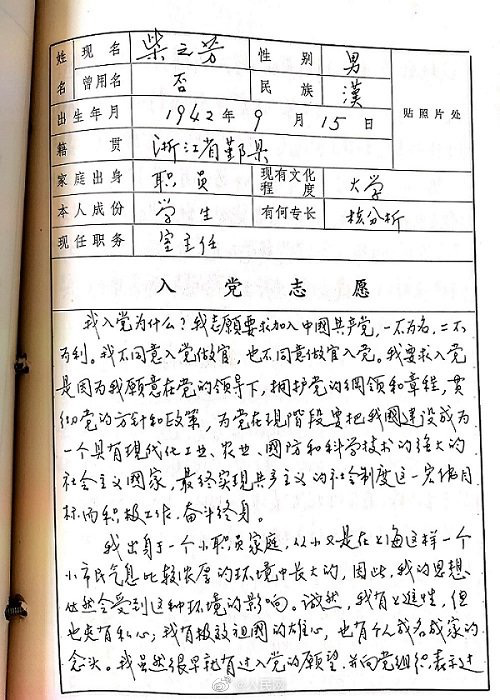 姓名 现名 柴之芳 性别 男
曾用名 否 民族 漢
贴照片处
出生年月 1942年9月15日
籍贯 浙江省鄞县
家庭出身 职员 现有文化程度 大学
本人成份 学生 有何专长 核分析
现任职务 室主任
入党志愿
我入党为什么？我志願要求加入中國共产党，一不为名，二不
为利。我不同意入党做官，也不同意做官入党。我要求入党
是因为我願意在党的领导下，拥护党的綱领和章程，贯
彻党的方针和政策，为党在现阶段要把我國建设成为
一个具有现代化工业、农业、國防和科学技术的强大的
社会主义國家，最终实现共产主义的社会制度这一宏偉目
标而积极工作，奋斗终身。
我出身于一个小职员家庭，从小又是在上海这样一个
小市民气息比较浓厚的环境中長大的，因此，我的思想
必然会受到这种环境的影响。诚然，我有上進性，但
也夹有私心；我有报效祖國的雄心，也有个人成名成家的
念头。我虽然很早就有过入党的願望，并向党组织表示过
@人民网